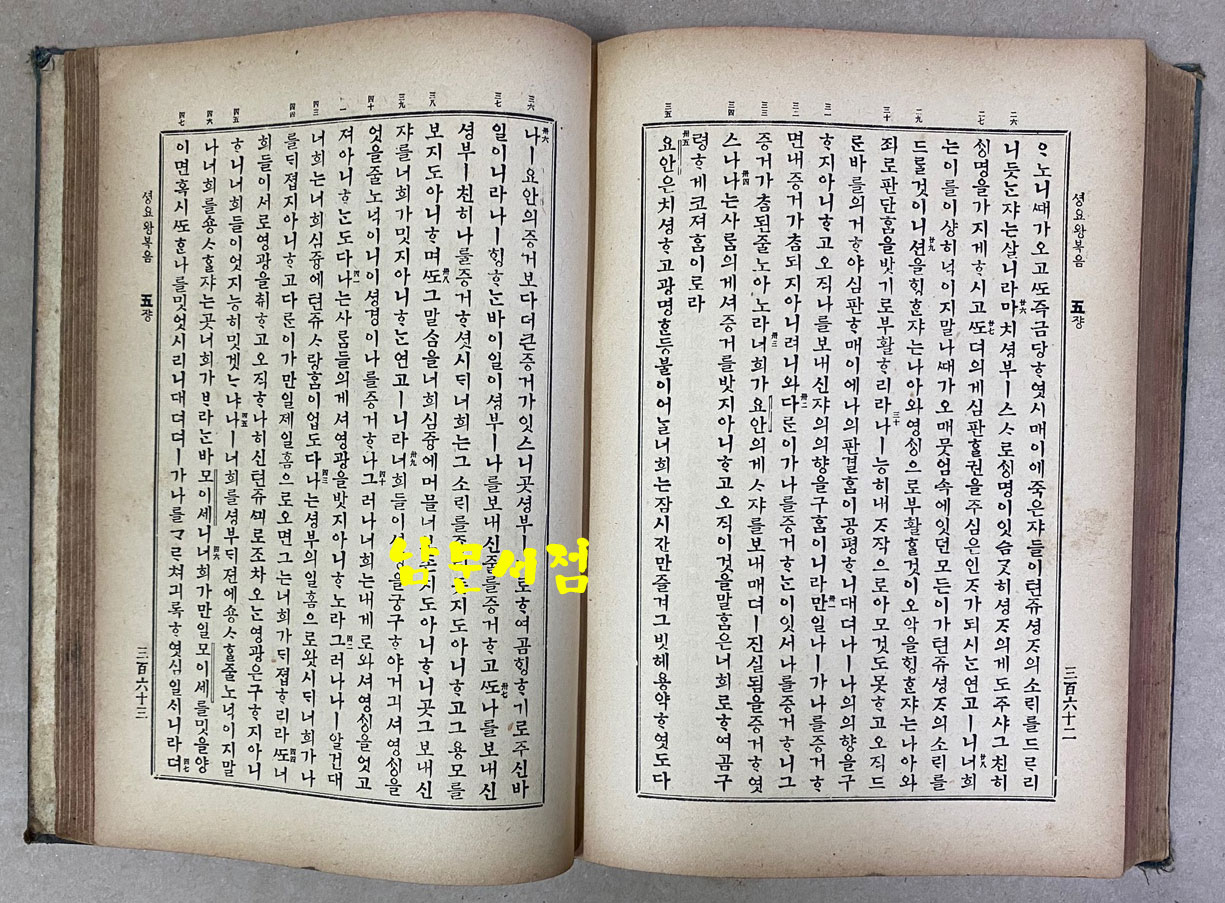 셩요왕복음 五쟝 三百六十二
二六 二七 二九 三十 三一 三二 三三 三四 三五
ᄋᆞ노니ᄯᅢ가오고ᄯᅩ즉금당ᄒᆞ엿시매이에죽은쟈들이텬쥬셩ᄌᆞ의소ᄅᆡ를드르리
니듯ᄂᆞᆫ쟈는살니라卄六마치셩부ㅣ스ᄉᆞ로ᄉᆡᆼ명이잇슴ᄀᆞᆺ히셩ᄌᆞ의게도주샤그친히
ᄉᆡᆼ명을가지게ᄒᆞ시고卄七ᄯᅩ뎌의게심판ᄒᆞᆯ권을주심은인ᄌᆞ가되시ᄂᆞᆫ연고ㅣ니卄八너희
는이를이샹히넉이지말나ᄯᅢ가오매뭇엄속에잇던모든이가텬쥬셩ᄌᆞ의소ᄅᆡ를
드ᄅᆞᆯ것이니卄九션을ᄒᆡᆼᄒᆞᆫ쟈는나아와영ᄉᆡᆼ으로부활ᄒᆞᆯ것이오악을ᄒᆡᆼᄒᆞᆫ쟈는나아와
죄로판단ᄒᆞᆷ을밧기로부활ᄒᆞ리라三十나ㅣ능히내ᄌᆞ작으로아모것도못ᄒᆞ고오직드
ᄅᆞᆫ바를의거ᄒᆞ야심판ᄒᆞ매이에나의판결ᄒᆞᆷ이공평ᄒᆞ니대뎌나ㅣ나의의향을구
ᄒᆞ지아니ᄒᆞ고오직나를보내신쟈의의향을구ᄒᆞᆷ이니라卅一만일나ㅣ가나를증거ᄒᆞ
면내증거가ᄎᆞᆷ되지아니려니와卅二다ᄅᆞᆫ이가나를증거ᄒᆞᄂᆞᆫ이잇서나를증거ᄒᆞ니그
증거가ᄎᆞᆷ된줄노아노라卅三너희가요안의게ᄉᆞ쟈를보내매뎌ㅣ진실됨을증거ᄒᆞ엿
스나卅四나는사ᄅᆞᆷ의게셔증거를밧지아니ᄒᆞ고오직이것을말ᄒᆞᆷ은너희로ᄒᆞ여곰구
령ᄒᆞ게코져ᄒᆞᆷ이로라
卅五요안은치셩ᄒᆞ고광명ᄒᆞᆫ등불이어ᄂᆞᆯ너희는잠시간만즐겨그빗헤용약ᄒᆞ엿도다
三六 三七 三八 三九 四十 一 四三 四四 四五 四六 四七
卅六나ㅣ요안의증거보다더큰증거가잇스니곳셩부ㅣ로ᄒᆞ여곰ᄒᆡᆼᄒᆞ기로주신바
일이니라나ㅣᄒᆡᆼᄒᆞᄂᆞᆫ바이일이셩부ㅣ나를보내신줄를증거ᄒᆞ고卅七ᄯᅩ나를보내신
셩부ㅣ친히나를증거ᄒᆞ셧시ᄃᆡ너희는그소ᄅᆡ를 지도아니ᄒᆞ고그용모를
보지도아니ᄒᆞ며卅八ᄯᅩ그말ᄉᆞᆷ을너희심즁에머믈 지도아니ᄒᆞ니곳그보내신
쟈를너희가밋지아니ᄒᆞᄂᆞᆫ연고ㅣ니라卅九너희들이 을궁구ᄒᆞ야거긔셔영ᄉᆡᆼ을
엇을줄노넉이니이셩경이나를증거ᄒᆞ나四十그러나너희는내게로와셔영ᄉᆡᆼ을엇고
져아니ᄒᆞᄂᆞᆫ도다四一나는사ᄅᆞᆷ들의게셔영광을밧지아니ᄒᆞ노라四二그러나나ㅣ알건대
너희는너희심즁에텬쥬ᄉᆞ랑ᄒᆞᆷ이업도다四三나는셩부의일홈으로왓시ᄃᆡ너희가나
를ᄃᆡ졉지아니ᄒᆞ고다ᄅᆞᆫ이가만일제일홈으로오면그는너희가ᄃᆡ졉ᄒᆞ리라四四ᄯᅩ너
희들이서로영광을취ᄒᆞ고오직ᄒᆞ나히신텬쥬ᄭᅴ로조차오ᄂᆞᆫ영광은구ᄒᆞ지아니
ᄒᆞ니너희들이엇지능히밋겟ᄂᆞ냐四五나ㅣ너희를셩부ᄃᆡ젼에숑ᄉᆞᄒᆞᆯ줄노넉이지말
나너희를숑ᄉᆞᄒᆞᆯ쟈는곳너희가ᄇᆞ라ᄂᆞᆫ바모이세니四六너희가만일모이세를밋을양
이면혹시ᄯᅩᄒᆞᆫ나를밋엇시리니대뎌뎌ㅣ가나를ᄀᆞᄅᆞ쳐긔록ᄒᆞ엿심일세니라四七뎌
셩요왕복음 五쟝 三百六十三
남문서점